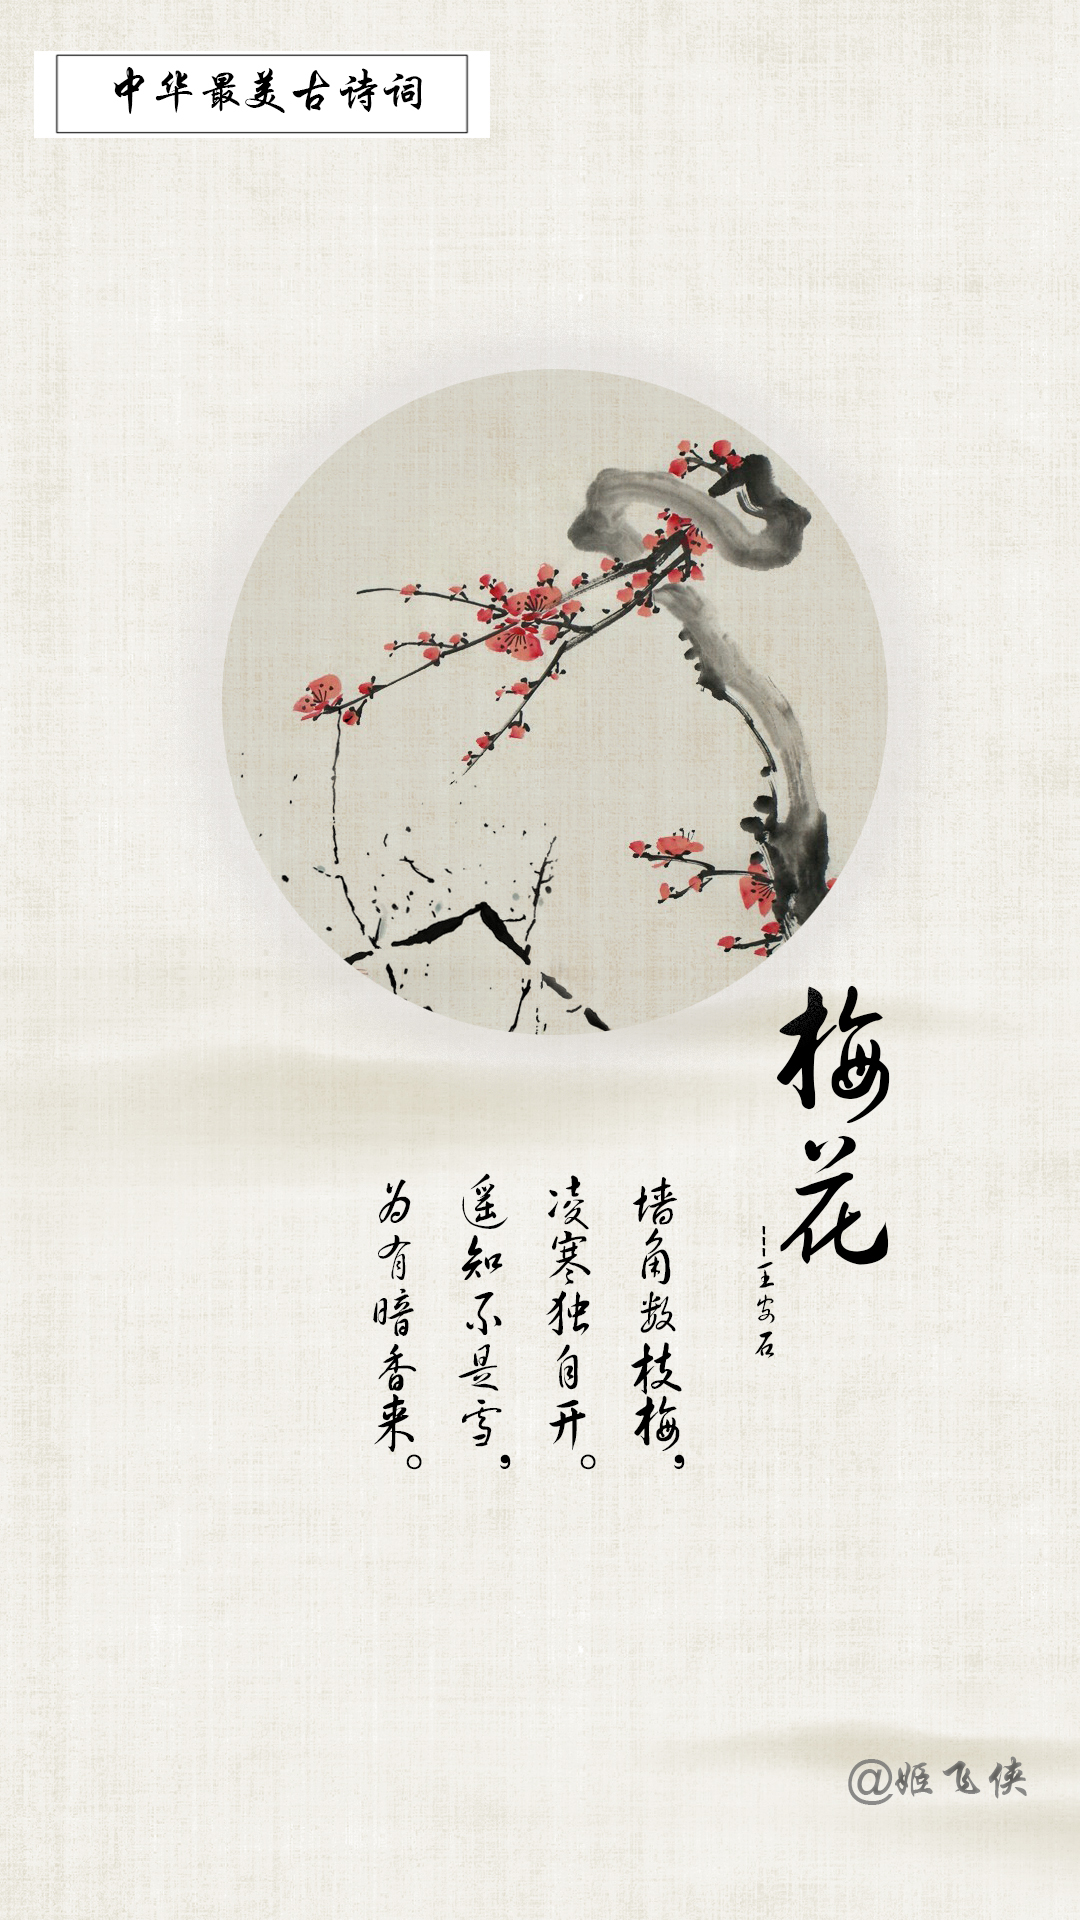 中华最美古诗词
梅花
---王安石
墙角数枝梅，
凌寒独自开。
遥知不是雪，
为有暗香来。
@姬飞侠